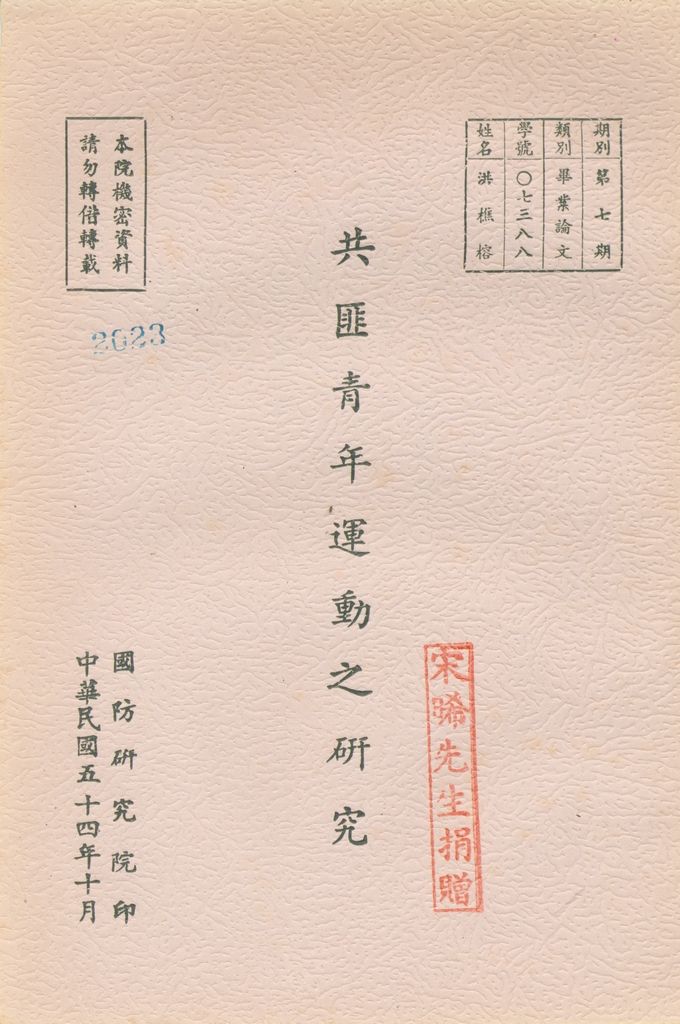 期別 第七期
類別 畢業論文
學號 〇七三八八
姓名 洪樵榕
共匪青年運動之研究
宋晞先生捐贈
本院機密資料
請勿轉借轉載
2023
國防研究院印
中華民國五十四年十月